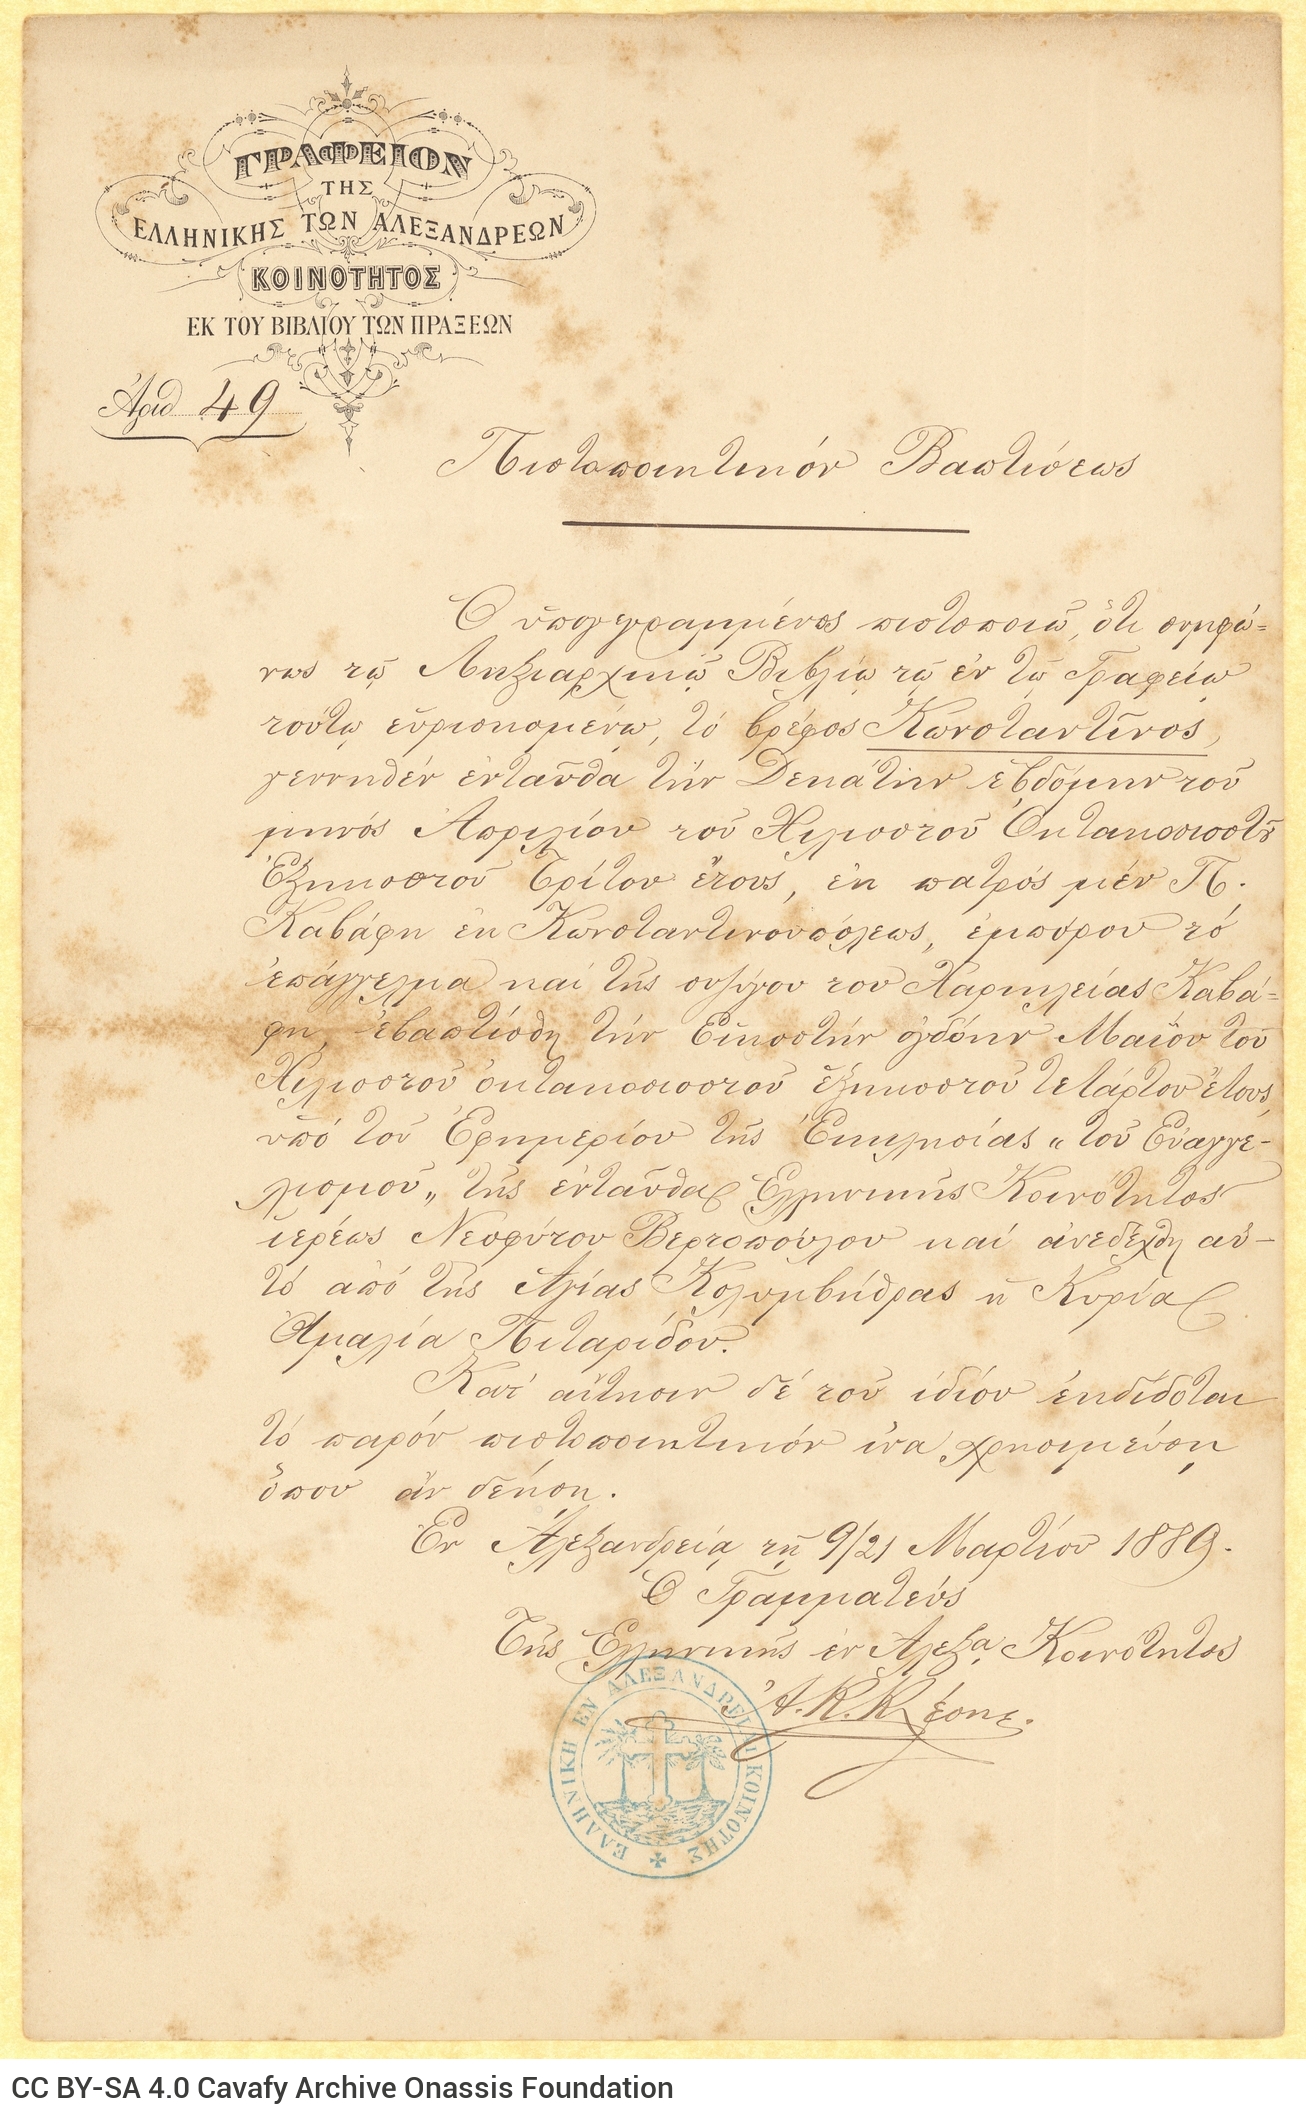 ΓΡΑΦΕΙΟΝ
ΤΗΣ
ΕΛΛΗΝΙΚΗΣ ΤΩΝ ΑΛΕΞΑΝΔΡΕΩΝ
ΚΟΙΝΟΤΗΤΟΣ
ΕΚ ΤΟΥ ΒΙΒΛΙΟΥ ΤΩΝ ΠΡΑΞΕΩΝ
Ἀριθ 49
Πιστοποιητικόν Βαπτίσεως
Ο ὑπογεγραμμένος πιστοποιῶ, ὅτι συμφώ=
νως τῷ Ληξιαρχικῷ Βιβλίῳ τῷ ἐν τῷ Γραφείῳ
τούτῳ εὑρισκομένῳ, τό βρέφος Κωνσταντῖνος,
γεννηθέν ἐνταῦθα τήν Δεκάτην ἑβδόμην τοῦ
μηνός Ἀπριλίου τοῦ Χιλιοστοῦ Ὀκτακοσιοστοῦ
Ἑξηκοστοῦ Τρίτου ἔτους, ἐκ πατρός μέν Π.
Καβάφη ἐκ Κωνσταντινουπόλεως, ἐμπόρου τό
ἐπάγγελμα καί τῆς συζύγου του Χαρικλείας Καβά=
φη, ἐβαπτίσθη τήν Εἰκοστήν ὀγδόην Μαΐου τοῦ
Χιλιοστοῦ ὀκτακοσιοστοῦ ἑξηκοστοῦ τετάρτου ἔτους,
ὑπό τοῦ Ἐφημερίου τῆς Ἐκκλησίας „ τοῦ Εὐαγγε-
λισμοῦ „ τῆς ἐνταῦθα Ἑλληνικῆς Κοινότητος
ἱερέως Νεοφύτου Βερτοπούλου καί ἀνεδέχθη αὐ-
τό ἀπό τῆς Ἁγίας Κολυμβήθρας ἡ Κυρία
Ἀμαλία Πιταρίδου.
Κατ' αἴτησιν δέ τοῦ ἰδίου ἐκδίδοται
τό παρόν πιστοποιητικόν ἵνα χρησιμεύσῃ
ὅπου ἄν δεήσῃ.
Ἐν Ἀλεξανδρείᾳ τῇ 9/21 Μαρτίου 1889.
Ὁ Γραμματεύς
Τῆς Ἑλληνικῆς ἐν Ἀλεξᾳ Κοινότητος
ΕΛΛΗΝΙΚΗ ΕΝ ΑΛΕΞΑΝΔΡΕΙΑι ΚΟΙΝΟΤΗΣ
CC BY-SA 4.0 Cavafy Archive Onassis Foundation